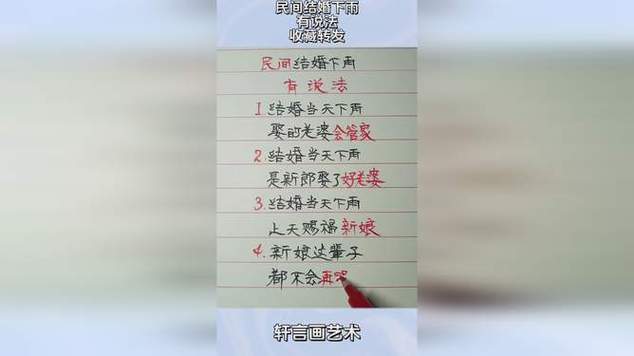 民间结婚下雨
有说法
收藏转发
民间结婚下雨
有说法
1.结婚当天下雨
娶的老婆会管家
2.结婚当天下雨
是新郎娶了好老婆
3.结婚当天下雨
上天赐福新娘
4.新娘这辈子
都不会再哭
轩言画艺术